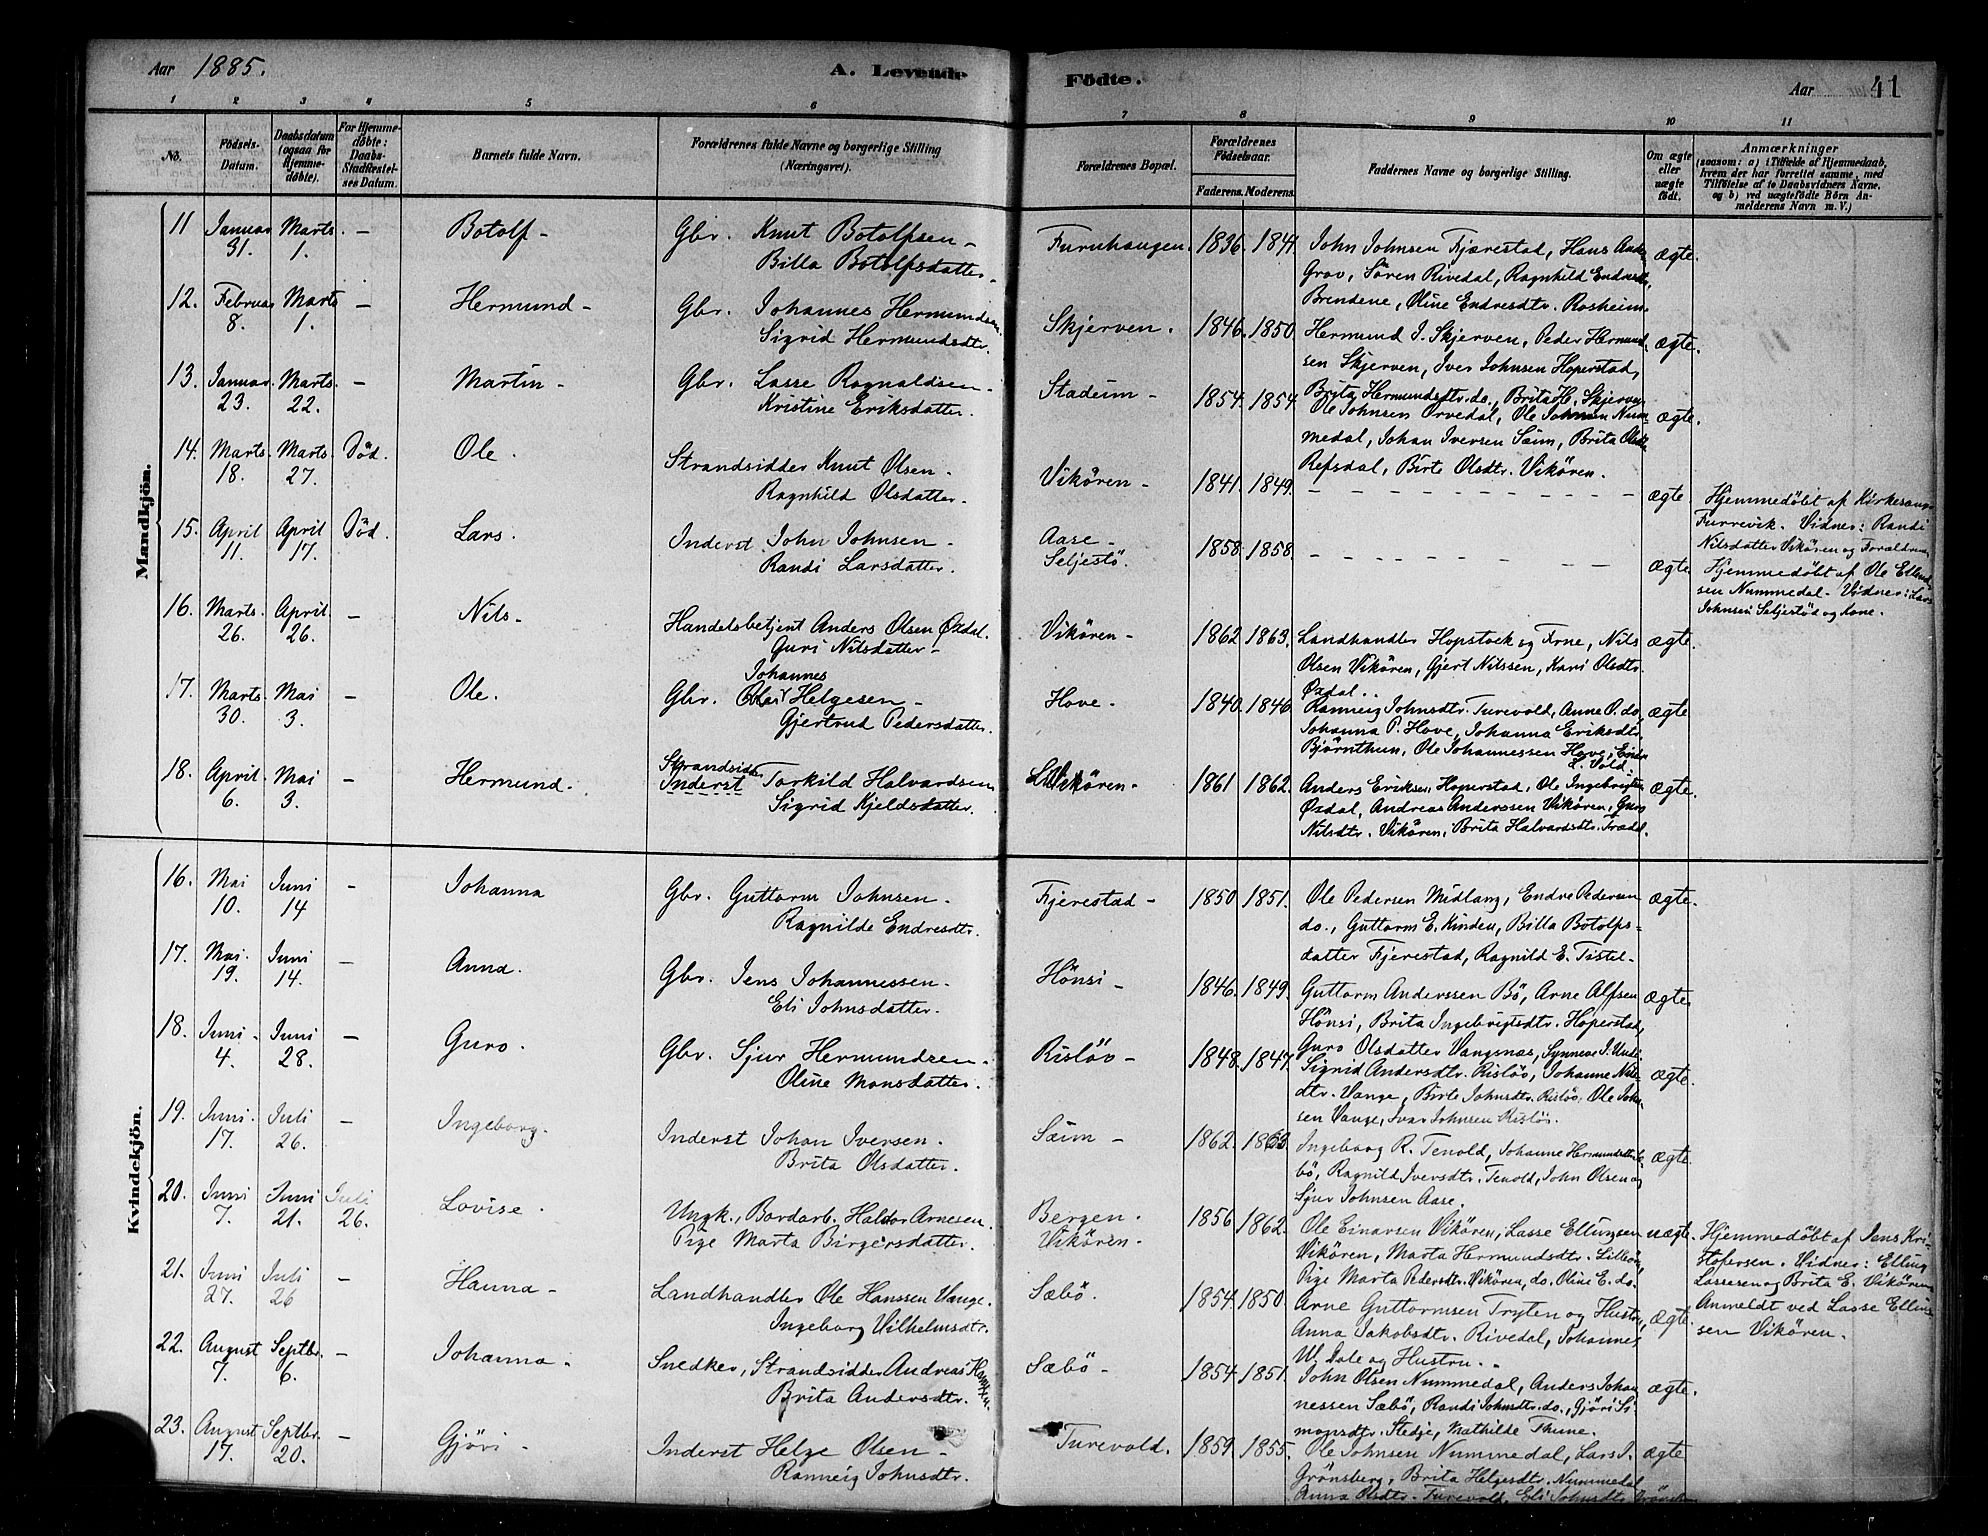 Aar 1885. A. Levende Fødte. Aar 41
1 2 3 4 5 6 7 8 9 10 11
No. Fødsels-Datum. Daabsdatum (ogsaa for Hjemmedøbte). For Hjemmedøbte: Daabs-Stadfæstelses Datum. Barnets fulde Navn. Forældrenes fulde Navne og borgerlige Stilling (Næringsvei). Forældrenes Bopæl. Forældrenes Fødselsaar. Faderens. Moderens. Faddernes Navne og borgerlige Stilling. Om ægte eller uægte født. Anmærkninger (saasom: a) i Tilfælde af Hjemmedaab, hvem der har forrettet samme, med Tilføielse af to Daabsvidners Navne, og b) ved uægtefødte Børn Anmelderens Navn m. V.)
Mandkjön.
11 Januar 31. Marts 1. - Botolf - Gbr. Knut Botolfsen - Billa Botolfsdatter. Furuhaugen. 1836. 1841. John Johnsen Fjærestad, Hans
Grov, Sören Rivedal, Ragnhild
Brendene, Oline Endresdtr. Rosheim. ægte.
12. Februar 8. Marts 1. - Hermund - Gbr. Johannes Hermundsen. Sigrid Hermundsdtr. Skjerven. 1846. 1850. Hermund J. Skjerven, Peder Hermund-
sen Skjerven, Iver Johnsen Hoperstad,
Brita Hermundsdtr. do., Brita H. Skjerven ægte.
13. Januar 23. Marts 22. - Martin - Gbr. Lasse Ragnaldsen - Kristine Eriksdatter. Stadeim - 1854. 1854. Ole Johnsen Orvedal, Ole Johnsen Num-
medal, Johan Iversen Saim, Brita Olsdtr.
Refsdal, Birte Olsdtr. Vikören. ægte.
14. Marts 18. Marts 27. Död. Ole. Strandsidder Knut Olsen - Ragnhild Olsdatter - Vikören - 1841. 1849. ægte Hjemmedøbt af Kirkesanger
Furrevik. Vidner: Randi
Nilsdatter Vikören og Forældrene
15. April 11. April 17. Död. Lars. Inderst John Johnsen - Randi Larsdatter. Aase - Seljestö. 1858. 1858. ægte. Hjemmedøbt af Ole Ellend-
sen Nummedal - Vidner: Lars
Johnsen Seljestöd og Kone.
16. Marts 26. April 26. - Nils - Handelsbetjent Anders Olsen Øxdal. Guri Nilsdatter - Vikören - 1862 1863. Landhandler Hopstock og Frue, Nils
Olsen Vikören, Gjert Nilssen, Kari Olsdtr.
Øxdal. ægte.
17. Marts 30. Mai 3. - Ole. Gbr. Johannes Helgesen - Gjertrud Pedersdatter. Hove. 1840. 1846 Ranneig Johnsdtr. Turevold, Anne P. do,
Johanna P. Hove, Johanna Eriksdtr.
Björnthun, Ole Johannessen Hove,
L. Vold. ægte
18. April 6. Mai 3. - Hermund. Strandsidder Inderst Torkild Halvardsen Sigrid Kjeldsdatter. Vikören. 1861 1862. Anders Eriksen Hoperstad, Ole Ingebrigtsen
Øxdal, Andreas Anderssen Vikören, Guro
Nilsdtr. Vikören, Brita Halvardsdtr. Trædal. ægte.
Kvindekjön.
16. Mai 10. Juni 14 - Johanna Gbr. Guttorm Johnsen. Ragnilde Endresdtr. Fjerestad - 1850 1851. Ole Pedersen Midlang, Endre Pedersen
do., Guttorm E. Kinden, Billa Botolfs-
datter Fjerestad, Ragnild E. Tistel - ægte.
17. Mai. 19. Juni 14. - Anna. Gbr. Jens Johannessen. Eli Johnsdatter. Hönsi - 1846. 1849. Guttorm Anderssen Bö, Arne Alfsen
Hönsi, Brita Ingebrigtsdtr. Hoperstad,
Guro Olsdatter Vangsnæs, Synneve J. Undi. ægte.
18. Juni 4. Juni 28. - Guro. Gbr. Sjur Hermundsen - Oline Monsdatter. Rislöv - 1848. 1847. Sigrid Andersdtr. Rislöv, Johanne Nils-
dtr. Vange, Birte Johnsdtr. Rislöv, Ole John-
sen Vange, Ivar Johnsen Rislöv. ægte.
19. Juni. 17. Juli 26. - Ingeborg. Inderst Johan Iversen. Brita Olsdatter. Saim - 1862. 1863 Ingeborg R. Tenold, Johanne Hermundsdtr.
bö, Ragnild Iversdtr. Tenold, John Olsen og
Sjur Johnsen Aase. ægte.
20. Juni 7. Juni 21. Juli 26. Lovise. Ungk., Bordarb. Haldor Arnesen. Pige Marta Birgersdatter. Bergen. Vikören. 1856 1862. Ole Einarsen Vikören, Lasse Ellingsen
Vikören, Marta Hermundsdtr.
Pige Marta Pedersdtr. Vikören, do. Oline E. do. uægte. Hjemmedøbt af Jens Kri-
stofersen. Vidner: Elling
Lassesen og Brita E. Vikören
Anmeldt ved Lasse Elling-
sen Vikören.
21. Juni 27. Juli 26 - Hanna - Landhandler Ole Hanssen Vange. Ingeborg Vilhelmsdtr. Sæbö. 1854. 1850. Arne Guttormsen Tryten og Hustru,
Anna Jakobsdtr. Rivedal, Johannes
W. Dale og Hustru. ægte.
22. August 7. Septbr. 6. - Johanna - Snedker, Strandsidder Andreas Hanssen. Brita Andersdtr. Sæbö - 1854. 1851. John Olsen Nummedal, Anders Johan-
nessen Sæbö, Randi Johnsdtr. do., Gjöri Si-
monsdtr. Stedje, Mathilde Thune. ægte.
23. August 17. Septbr. 20. - Gjöri - Inderst Helge Olsen - Ranneig Johnsdtr. Turevold. 1859. 1855. Ole Johnsen Nummedal, Lars J.
Grönsberg, Brita Helgesdtr. Nummedal
Anna Olsdtr. Turevold, Eli Johnsdtr. ægte